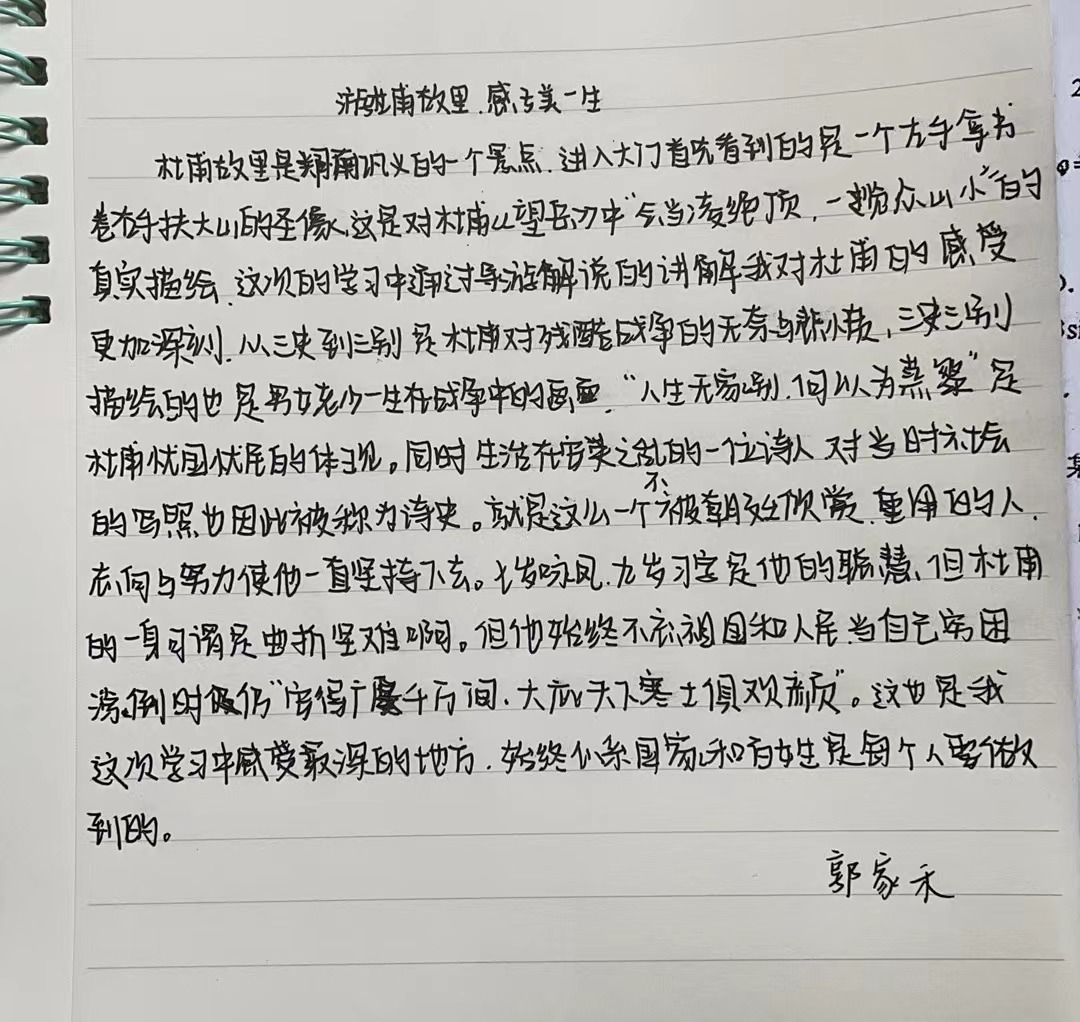 游杜甫故里.感专美一生
杜甫故里是河南巩义的一个景点.进入大门首先看到的是一个左手拿书
卷右手扶大山的圣像.这是对杜甫《望岳》中"会当凌绝顶，一览众山小"的
真实描绘.这次的学习中通过导游解说的讲解我对杜甫的感受
更加深刻.从三吏到三别是杜甫对残酷战争的无奈与悲愤,三吏三别
描绘的也是男女老少一生在战争中的画面."人生无家别.何以为蒸黎"是
杜甫忧国忧民的体现。同时生活在安莱之乱的一位诗人对当时社会
的写照也因此被称为诗史。就是这么一个不被朝廷欣赏.重用的人.
志向与努力使他一直坚持下去。七岁咏凤.九岁习字是他的聪慧、但杜甫
的一身可谓是曲折坚难啊。但他始终不忘祖国和人民当自己穷困
潦倒时仍"安得广厦千万间.大庇天下寒士俱欢颜"。这也是我
这次学习中感受最深的地方.始终心系国家和百姓是每个人要做
到的。
郭家禾